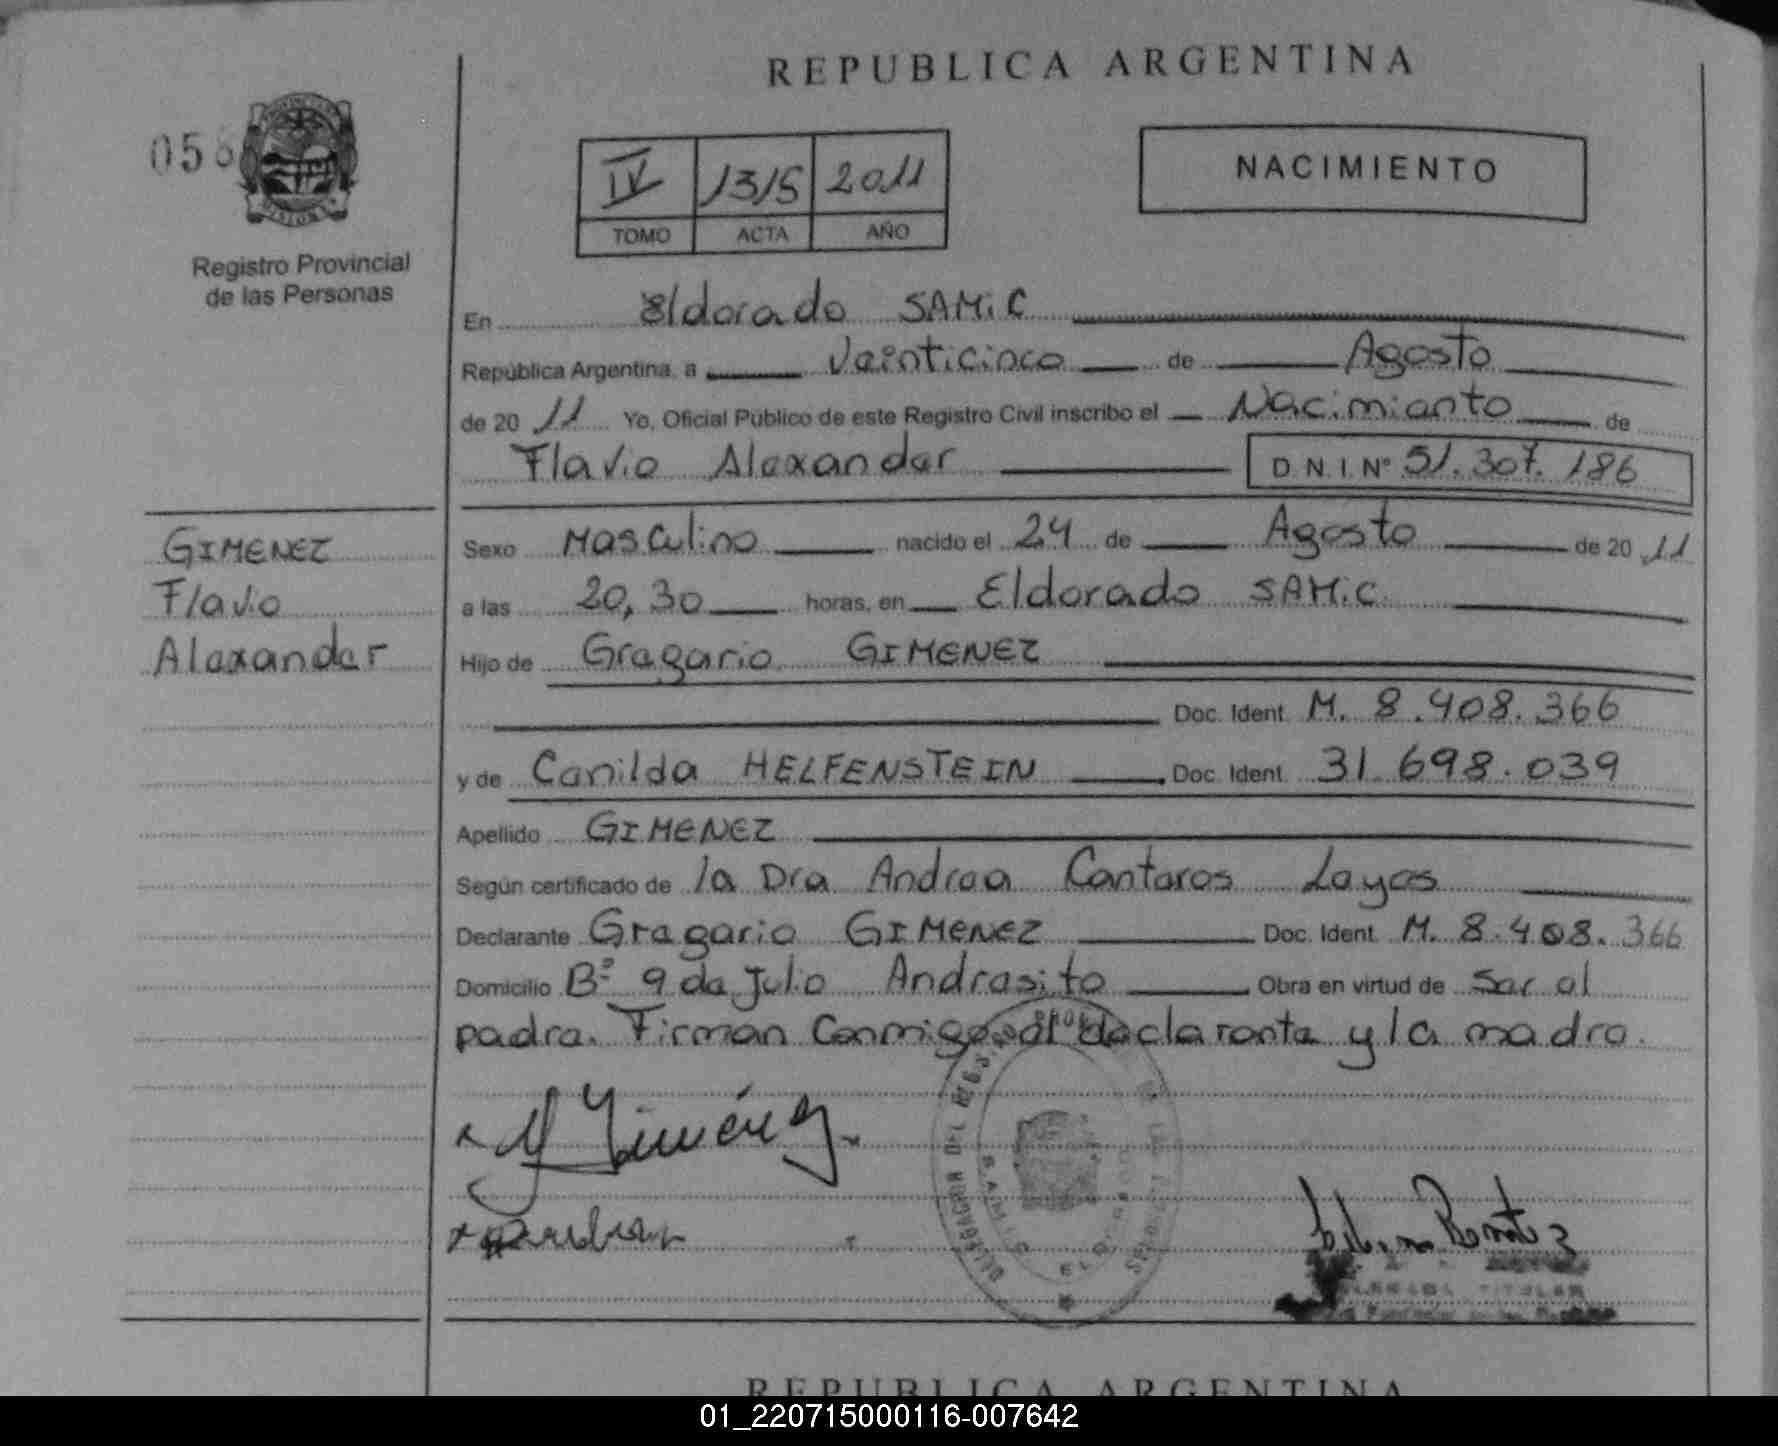 REPUBLICA ARGENTINA
NACIMIENTO
IV 1315 2011
TOMO ACTA AÑO
Registro Provincial
de las Personas
En Eldorado SAMiC
República Argentina, a Veinticinco de Agosto
de 2011 Yo, Oficial Público de este Registro Civil inscribo el Nacimiento de
Flavio Alexander D.N.I. Nº 51.307.186
GIMENEZ
Flavio
Alexander
Sexo Masculino nacido el 24 de Agosto de 2011
a las 20,30 horas, en Eldorado SAMiC.
Hijo de Gregorio GIMENEZ
Doc. Ident. M. 8.408.366
y de Canilda HELFENSTEIN Doc. Ident. 31.698.039
Apellido GIMENEZ
Según certificado de la Dra Andrea Canteros Leyes
Declarante Gregorio GIMENEZ Doc. Ident. M. 8.408.366
Domicilio Bº 9 de Julio Andresito Obra en virtud de ser el
padre. Firman Conmigo el declarante y la madre.
REPUBLICA ARGENTINA
01_220715000116-007642